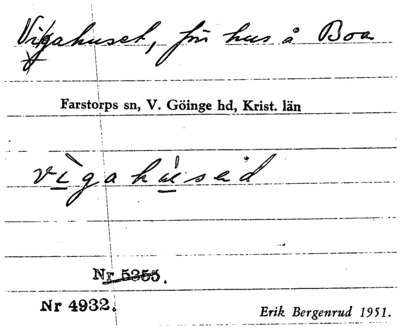 Vigahuset, fm hus å Boa
Farstorps sn, V. Göinge hd, Krist. län
vìgahúsəd
Nr 5355.
Nr 4932.
Erik Bergenrud 1951.